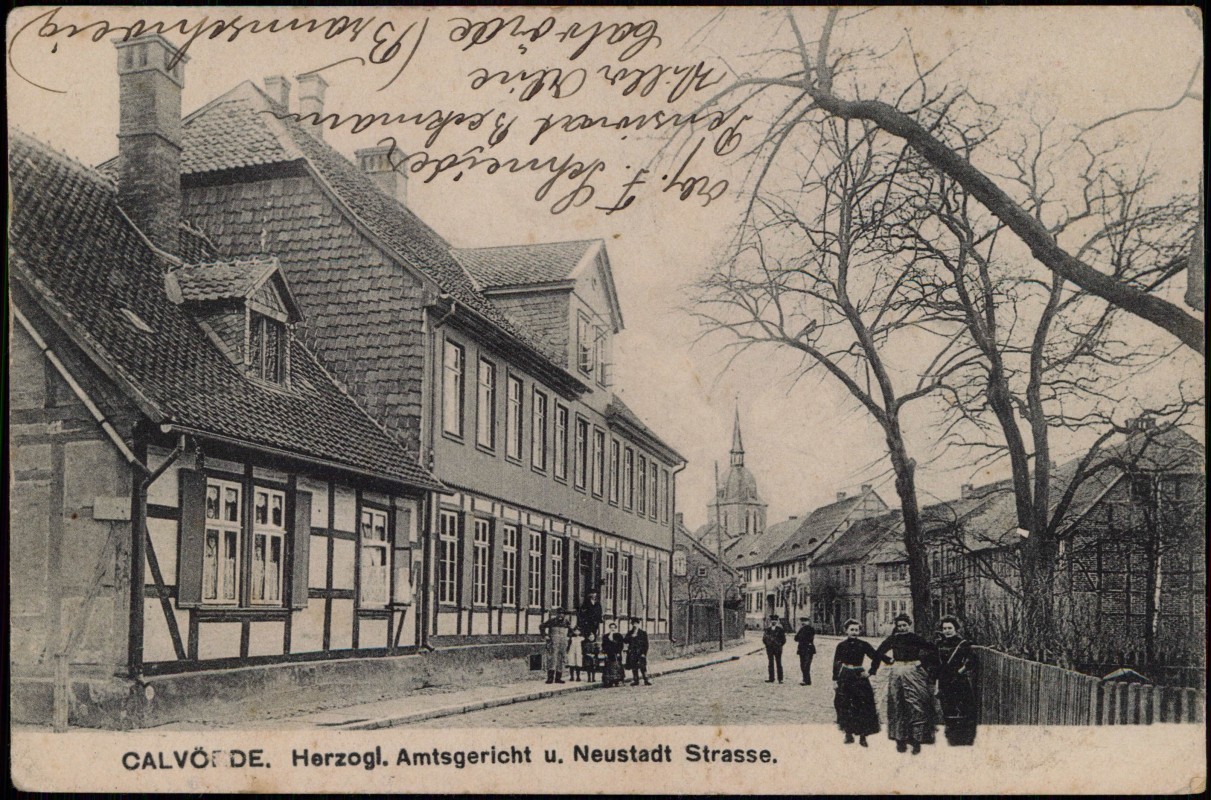 Abs. F. Schneider
Pensionat Beckmann
Villa
Calvörde (Braunschweig)
CALVÖRDE. Herzogl. Amtsgericht u. Neustadt Strasse.